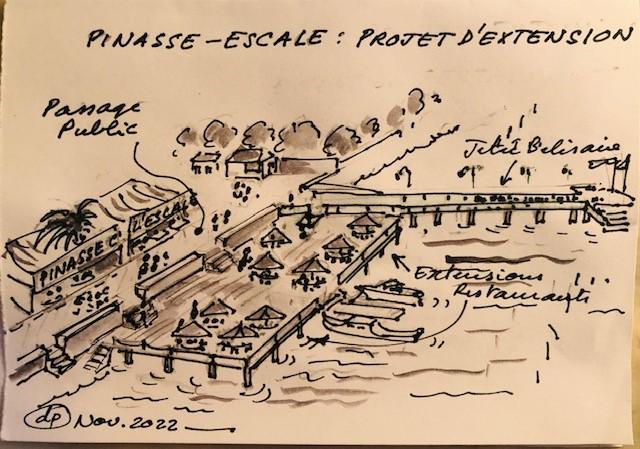 PINASSE-ESCALE : PROJET D'EXTENSION
Passage
Public
Jetée Bélisaire
L'ESCALE
PINASSE C.
Extensions
Restaurants
dp Nov. 2022